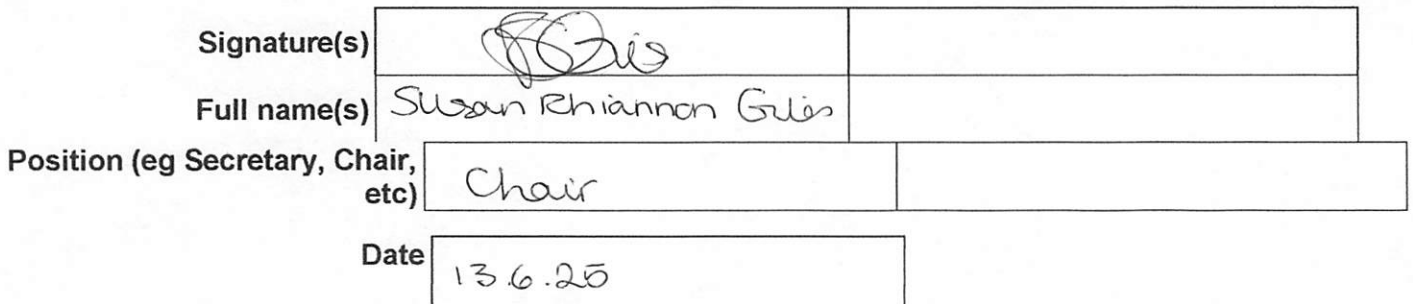 Signature(s)
Full name(s) Susan Rhiannon Giles
Position (eg Secretary, Chair,
etc) Chair
Date 13.6.25